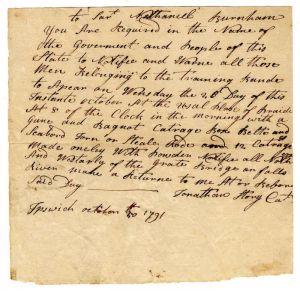 to Sar Nathaniell Burnham
You Are Required in the Name of
the Goverment and People of this
State to Notifee and Warne all those
Men Belonging to the Training Bande
to Apear on Wedsday the Day of this
Instante october At the usal Place of Praide
At 8 of the Clock in the morning with a
Gune and Bagnat Catrage Box Belte and
Seabord Iorn or Steale Rode and 12 Catrage
Made onely With Powder Notifee all
And Wstarly of the Grate Bridge an falls
River make a Returne to me At or Before
Said Day
Jonathan Story Cat
Ipswich october 1791